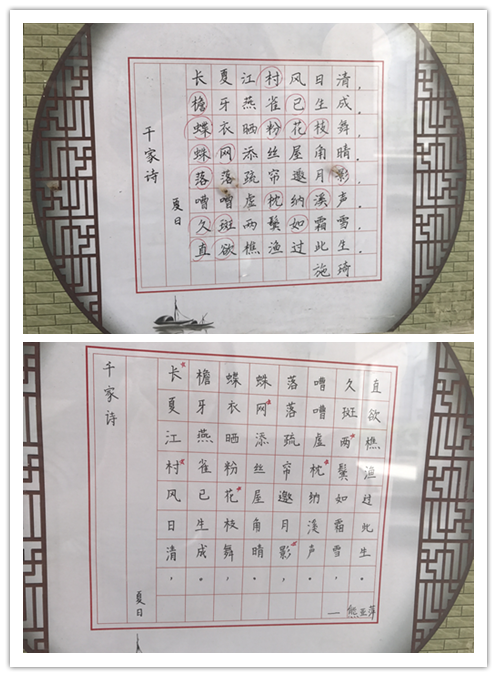 千家诗
夏日
长夏江村风日清，
檐牙燕雀已生成。
蝶衣晒粉花枝舞，
蛛网添丝屋角晴。
落落疏帘邀月影，
嘈嘈虚枕纳溪声。
久斑两鬓如霜雪，
直欲樵渔过此生。
施琦
千家诗
夏日
长夏江村风日清，
檐牙燕雀已生成。
蝶衣晒粉花枝舞，
蛛网添丝屋角晴。
落落疏帘邀月影，
嘈嘈虚枕纳溪声。
久斑两鬓如霜雪，
直欲樵渔过此生。
— 熊亚萍